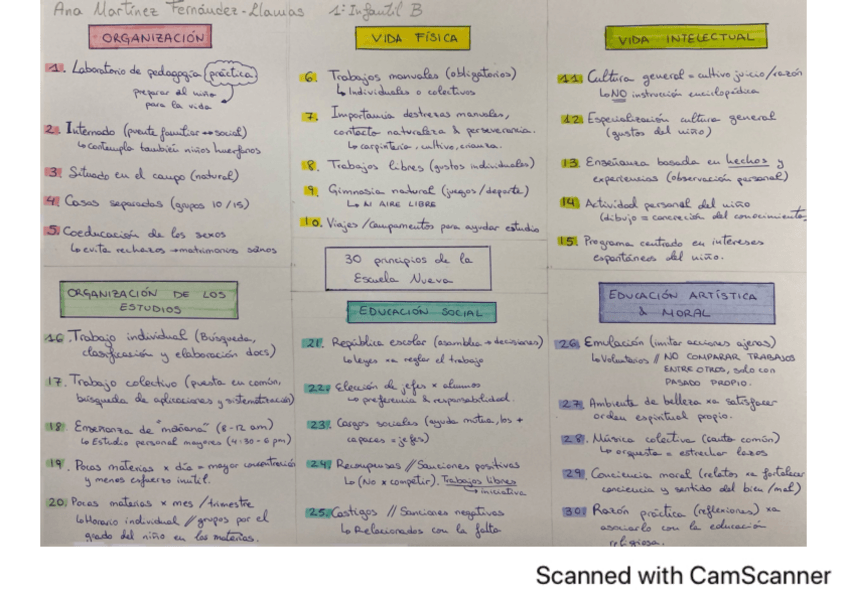 Ana Martínez Fernández-Llamas 1º Infantil B
ORGANIZACIÓN
1. Laboratorio de pedagogía práctica
preparar al niño
para la vida
2. Internado (puente familiar ↔ social)
↳ contempla también niños huérfanos
3. Situado en el campo (natural)
4. Casas separadas (grupos 10/15)
5. Coeducación de los sexos
↳ evita rechazos → matrimonios sanos
VIDA FÍSICA
6. Trabajos manuales (obligatorios)
↳ Individuales o colectivos
7. Importancia destrezas manuales,
contacto naturaleza & perseverancia.
↳ carpintería, cultivo, crianza.
8. Trabajos libres (gustos individuales)
9. Gimnasia natural (juegos/deporte)
↳ AIRE LIBRE
10. Viajes/campamentos para ayudar estudio
VIDA INTELECTUAL
11. Cultura general = cultivo juicio/razón
↳ NO instrucción enciclopédica
12. Especialización cultura general
(gustos del niño)
13. Enseñanza basada en hechos y
experiencias (observación personal)
14. Actividad personal del niño
(dibujo = concreción del conocimiento)
15. Programa centrado en intereses
espontáneos del niño.
30 principios de la
Escuela Nueva
ORGANIZACIÓN DE LOS
ESTUDIOS
16. Trabajo individual (Búsqueda,
clasificación y elaboración docs)
17. Trabajo colectivo (puesta en común,
búsqueda de aplicaciones y sistematización)
18. Enseñanza de "mañana" (8-12 am)
↳ Estudio personal mayores (4:30-6 pm)
19. Pocas materias x día = mayor concentración
y menos esfuerzo inútil.
20. Pocas materias x mes/trimestre
↳ Horario individual // grupos por el
grado del niño en las materias.
EDUCACIÓN SOCIAL
21. República escolar (asamblea → decisiones)
↳ leyes xa reglar el trabajo
22. Elección de jefes x alumnos
↳ preferencia & responsabilidad.
23. Cargos sociales (ayuda mutua, los +
capaces = jefes)
24. Recompensas // Sanciones positivas
↳ (No x competir). Trabajos libres
↳ iniciativa
25. Castigos // Sanciones negativas
↳ Relacionados con la falta
EDUCACIÓN ARTÍSTICA
& MORAL
26. Emulación (imitar acciones ajenas)
↳ Voluntarios // NO COMPARAR TRABAJOS
ENTRE OTROS, solo con
PASADO PROPIO.
27. Ambiente de belleza xa satisfacer
orden espiritual propio.
28. Música colectiva (canto común)
↳ orquesta = estrechar lazos
29. Conciencia moral (relatos xa fortalecer
conciencia y sentido del bien/mal)
30. Razón práctica (reflexiones) xa
asociarlo con la educación
religiosa.
Scanned with CamScanner